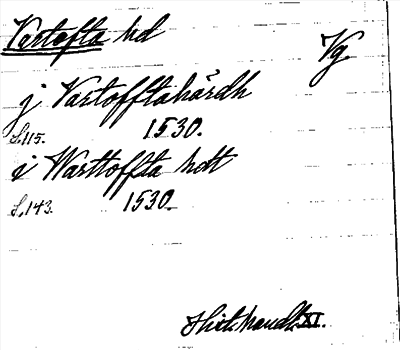 Vartofta hd Vg
j Vartofftahärdh
S. 115. 1530.
i Warttoffta hdt
S. 143. 1530.
Hist. handl. XI.